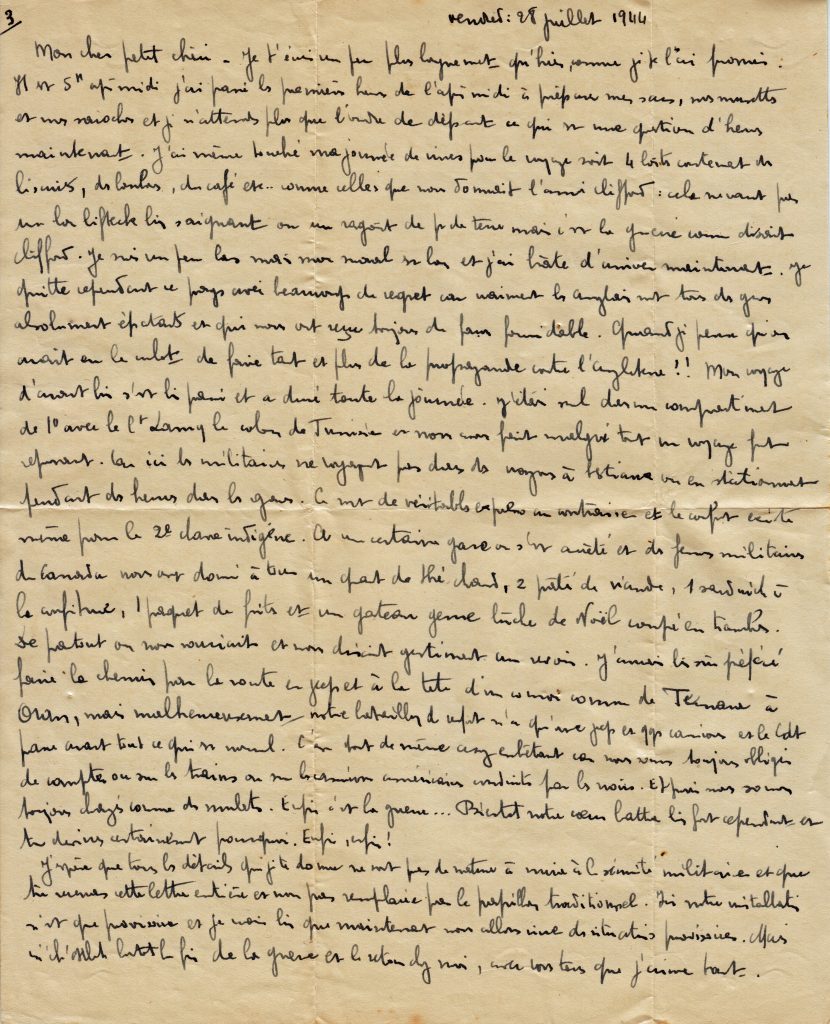 3
vendredi 28 juillet 1944
Mon cher petit chéri - Je t'écris un peu plus longuement qu'hier, comme je te l'ai promis.
Il est 5h après midi j'ai passé les premières heures de l'après midi à préparer mes sacs, mes musettes
et mes sacoches et je n'attends plus que l'ordre de départ ce qui est une question d'heures
maintenant. J'ai même touché ma journée de vivres pour le voyage soit 4 boîtes contenant des
biscuits, des bonbons, du café etc.. comme celles que nous donnait l'ami Clifford : cela ne vaut pas
un bon bifteck bien saignant ou un ragoût de p de terre mais c'est la guerre comme disait
Clifford. Je suis un peu las mais mon moral est bon et j'ai hâte d'arriver maintenant. Je
quitte cependant ce pays avec beaucoup de regret car vraiment les anglais sont tous des gens
absolument épatants et qui nous ont reçus toujours de façon formidable. Quand je pense qu'on
avait eu le culot de faire tant et plus de la propagande contre l'Angleterre !! Mon voyage
d'avant hier s'est bien passé et a duré toute la journée. J'étais seul dans un compartiment
de 1º avec le Ct Lamy le colon de Tunisie et nous avons fait malgré tout un voyage fort
reposant. Car ici les militaires ne voyagent pas dans des wagons à bestiaux ou en stationnant
pendant des heures dans les gares. Ce sont de véritables express au contraire et le confort existe
même pour la 2e classe indigène. A une certaine gare on s'est arrêté et des femmes militaires
du Canada nous ont donné à tous un quart de thé chaud, 2 pâtés de viande, 1 sandwich à
la confiture, 1 paquet de fruits et un gateau genre bûche de Noël coupé en tranches.
De partout on nous souriait et nous disait gentiment au revoir. J'aurais bien sûr préféré
faire le chemin par la route en jeep et à la tête d'un convoi comme de à
Oran, mais malheureusement notre bataillon de renfort n'a qu'une jeep et qqs camions et le Cdt
passe avant tout ce qui est normal. C'est tout de même assez embêtant car nous sommes toujours obligés
de compter ou sur les trains ou sur les camions américains conduits par les noirs. Et puis nous sommes
toujours chargés comme des mulets. Enfin c'est la guerre... Bientôt notre coeur battra bien fort cependant et
tu devines certainement pourquoi. Enfin, enfin !
J'espère que tous les détails que je te donne ne sont pas de nature à nuire à la sécurité militaire et que
tu recevras cette lettre entière et non pas remplacée par le papillon traditionnel. Ici notre installation
n'est que provisoire et je crois bien que maintenant nous allons vivre des situations provisoires. Mais
bientôt la fin de la guerre et le retour chez moi, avec vous tous que j'aime tant.